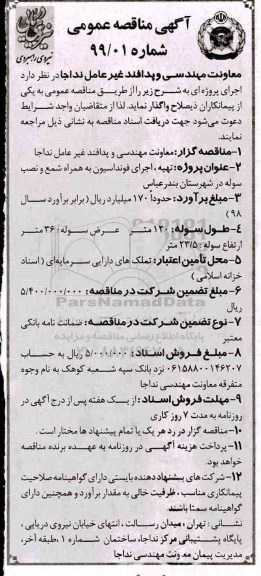 آگهی مناقصه عمومی
شماره ۹۹/۰۱
معاونت مهندسی و پدافند غیر عامل نداجا در نظر دارد
اجرای پروژه ای به شرح زیر را از طریق مناقصه عمومی به یکی
از پیمانکاران ذیصلاح واگذار نماید. لذا از متقاضیان واجد شرایط
دعوت می‌شود جهت دریافت اسناد مناقصه به نشانی ذیل مراجعه
نمایند.
۱-مناقصه گزار: معاونت مهندسی و پدافند غیر عامل نداجا
۲-عنوان پروژه: تهیه ، اجرای فونداسیون به همراه شمع و نصب
سوله در شهرستان بندرعباس
۳-مبلغ برآورد: حدوداً ۱۷۰ میلیارد ریال ( برابر برآورد سال
۹۸ )
۴- طول سوله: ۱۲۰ متر عرض سوله: ۳۶ متر
ارتفاع سوله: ۲۳/۵ متر
۵- محل تأمین اعتبار: تملک های دارایی سرمایه‌ای ( اسناد
خزانه اسلامی )
۶-مبلغ تضمین شرکت در مناقصه: ۵/۴۰۰/۰۰۰/۰۰۰
ریال
۷- نوع تضمین شرکت در مناقصه: ضمانت نامه بانکی
معتبر
۸-مبلغ فروش اسناد: ۵/۰۰۰/۰۰۰ ریال به حساب
۰۶۱۵۸۸۰۰۱۴۶۲۰۷ نزد بانک سپه شعبه کوهک به نام وجوه
متفرقه معاونت مهندسی نداجا
۹-مهلت فروش اسناد: از یک هفته پس از درج آگهی در
روزنامه به مدت ۷ روز کاری
۱۰-مناقصه گزار در رد هر یک یا تمام پیشنهاد ها مختار است .
۱۱-پرداخت هزینه آگهی در روزنامه به عهده برنده مناقصه
خواهد بود.
۱۲-شرکت های پیشنهاد دهنده بایستی دارای گواهینامه صلاحیت
پیمانکاری مناسب ، ظرفیت خالی به مقدار برآورد و همچنین دارای
گواهینامه سمتا باشند
نشانی : تهران ، میدان رسالت ، انتهای خیابان نیروی دریایی ،
پایگاه پشتیبانی مرکز نداجا، ساختمان شماره ۱ ،طبقه آخر،
مدیریت پیمان معاونت مهندسی نداجا